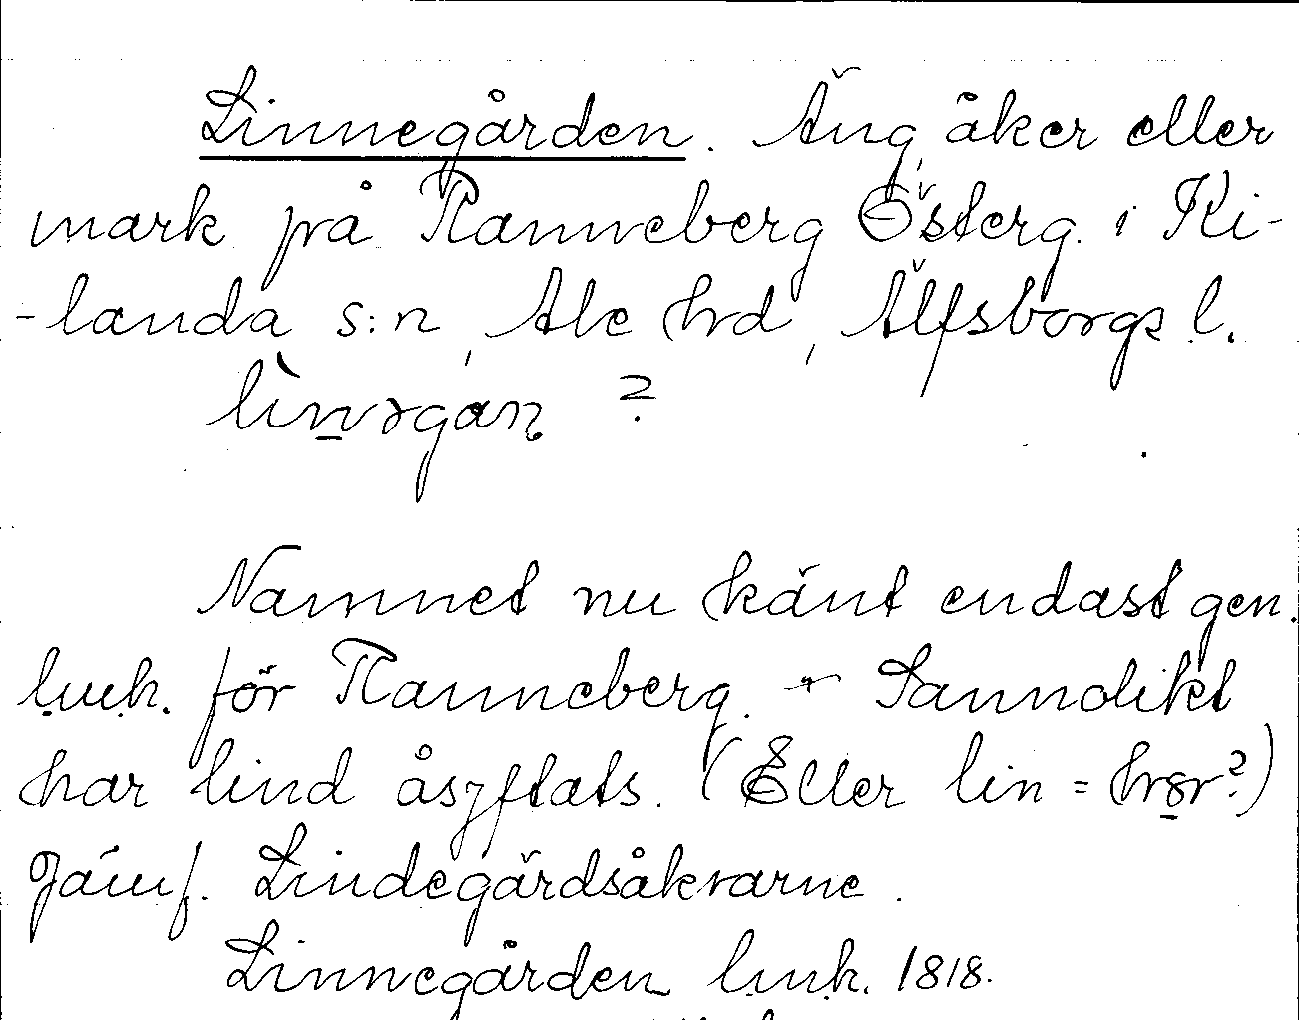 Linnegården. Äng, åker eller
mark på Ranneberg Österg. i Ki-
-landa s:n, Ale hrd, Älfsborgs l.
linrgan ?
Namnet nu känt endast gen.
lmh. för Ranneberg. - Sannolikt
har lind åsyftats. (Eller lin = hör?)
Jämf. Lindegärdsåkrarne.
Linnegården lmh. 1818.